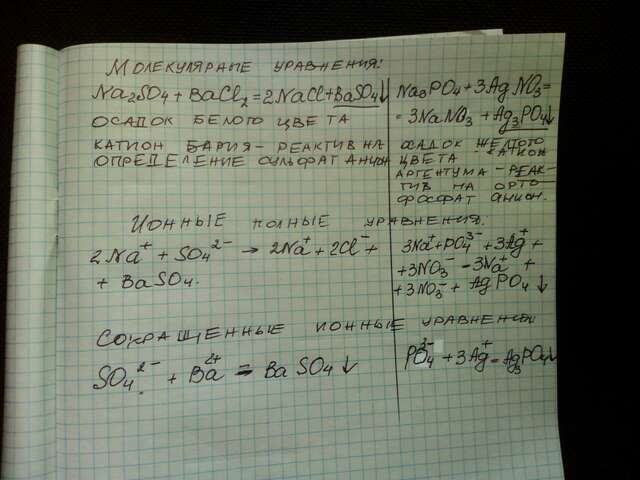 Молекулярные уравнения:
Na₂SO₄ + BaCl₂ = 2NaCl + BaSO₄↓
осадок белого цвета
катион бария - реактив на
определение сульфат анион
Na₃PO₄ + 3AgNO₃ =
= 3NaNO₃ + Ag₃PO₄↓
осадок желтого
цвета - катион
аргентума - реак-
тив на орто-
фосфат анион.
Ионные полные уравнения.
2Na⁺ + SO₄²⁻ → 2Na⁺ + 2Cl⁻ +
+ BaSO₄.
3Na⁺ + PO₄³⁻ + 3Ag⁺ +
+ 3NO₃⁻ = 3Na⁺ +
+ 3NO₃⁻ + AgPO₄↓
Сокращенные ионные уравнения
SO₄²⁻ + Ba²⁺ = BaSO₄↓
PO₄³⁻ + 3Ag⁺ = Ag₃PO₄↓